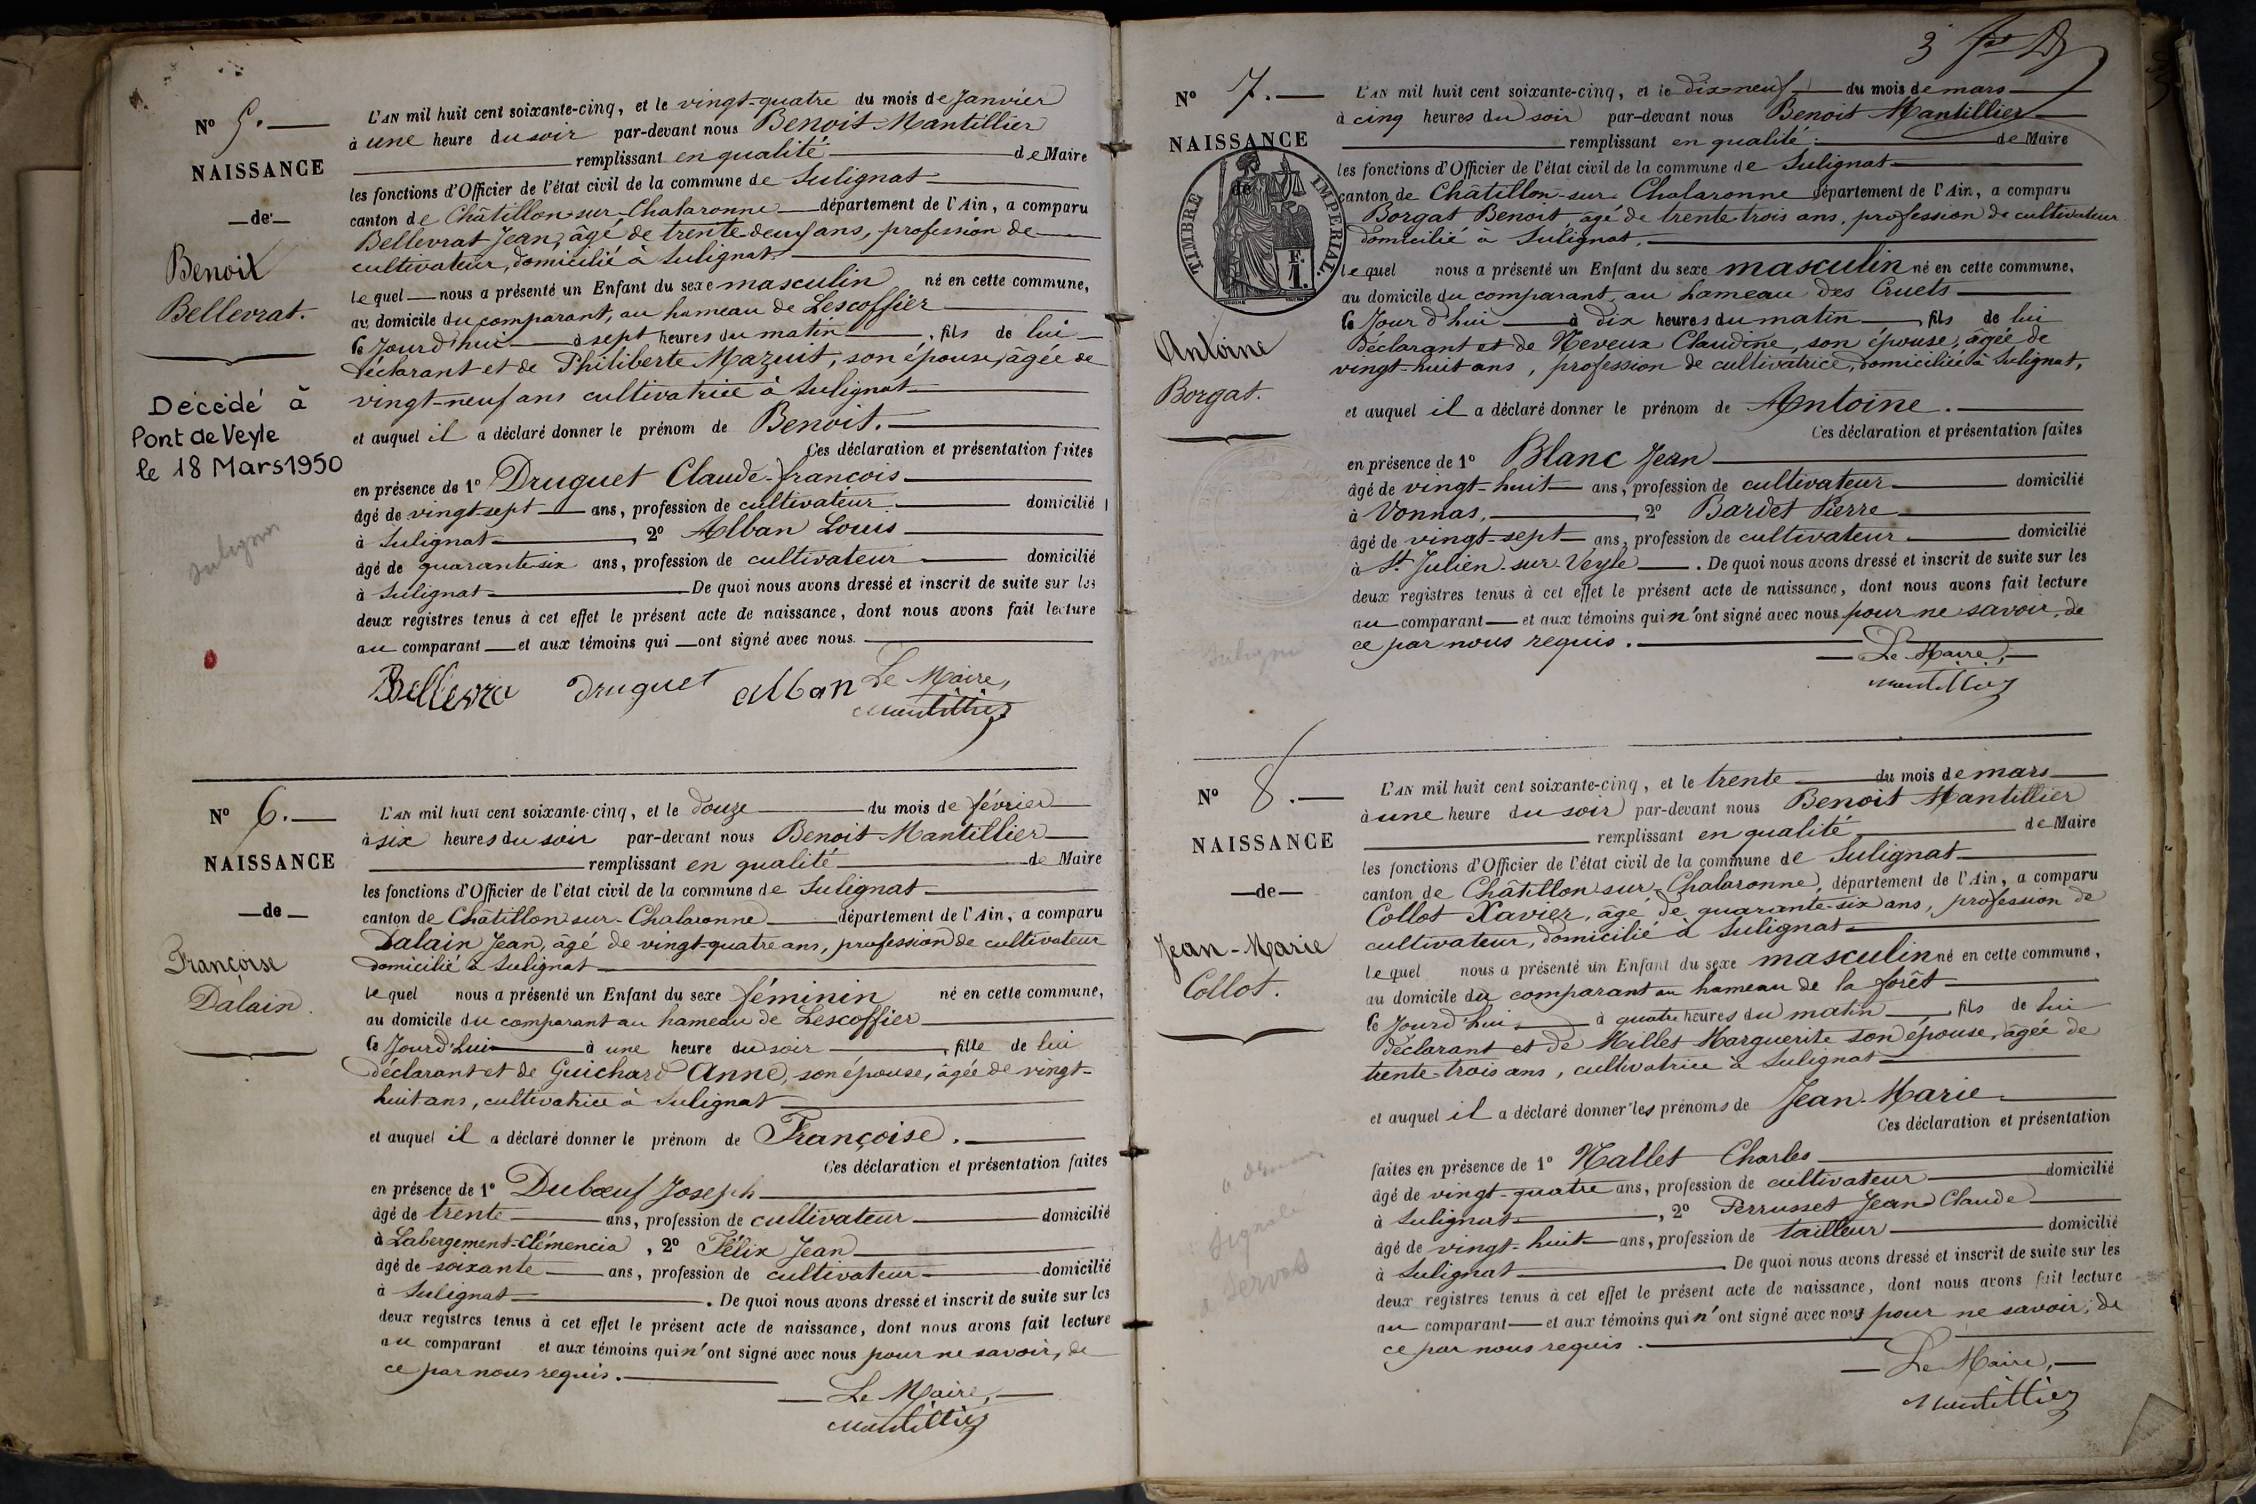 Nº 5.
NAISSANCE
de
Benoit
Bellevrat.
Décédé à
Pont de Veyle
le 18 Mars 1950
L'AN mil huit cent soixante-cinq, et le vingt-quatre du mois de Janvier
à une heure du soir par-devant nous Benoit Mantillier
remplissant en qualité de Maire
les fonctions d'Officier de l'état civil de la commune de Sulignat
canton de Châtillon-sur-Chalaronne département de l'Ain, a comparu
Bellevrat Jean, âgé de trente-deux ans, profession de
cultivateur, domicilié à Sulignat
lequel nous a présenté un Enfant du sexe masculin né en cette commune,
au domicile du comparant, au hameau de Lescoffier
ce Jourd'hui à sept heures du matin, fils de lui
déclarant et de Philiberte Mazuit, son épouse, âgée de
vingt-neuf ans cultivatrice à Sulignat
et auquel il a déclaré donner le prénom de Benoit.
Ces déclaration et présentation faites
en présence de 1º Druguet Claude-françois
âgé de vingt sept ans, profession de cultivateur domicilié
à Sulignat, 2º Alban Louis
âgé de quarante-six ans, profession de cultivateur domicilié
à Sulignat De quoi nous avons dressé et inscrit de suite sur les
deux registres tenus à cet effet le présent acte de naissance, dont nous avons fait lecture
au comparant et aux témoins qui ont signé avec nous.
Bellevra druguet alban Le Maire,
Mantillier
Nº 6.
NAISSANCE
de
Françoise
Dalain.
L'AN mil huit cent soixante-cinq, et le douze du mois de février
à six heures du soir par-devant nous Benoit Mantillier
remplissant en qualité de Maire
les fonctions d'Officier de l'état civil de la commune de Sulignat
canton de Châtillon-sur-Chalaronne département de l'Ain, a comparu
Dalain Jean, âgé de vingt-quatre ans, profession de cultivateur
domicilié à Sulignat
lequel nous a présenté un Enfant du sexe féminin né en cette commune,
au domicile du comparant au hameau de Lescoffier
ce Jourd'hui à une heure du soir, fille de lui
déclarant et de Guichard Anne, son épouse, âgée de vingt-
huit ans, cultivatrice à Sulignat
et auquel il a déclaré donner le prénom de Françoise.
Ces déclaration et présentation faites
en présence de 1º Dubœuf Joseph
âgé de trente ans, profession de cultivateur domicilié
à Labergement-Clémencia, 2º Félix Jean
âgé de soixante ans, profession de cultivateur domicilié
à Sulignat. De quoi nous avons dressé et inscrit de suite sur les
deux registres tenus à cet effet le présent acte de naissance, dont nous avons fait lecture
au comparant et aux témoins qui n'ont signé avec nous pour ne savoir, de
ce par nous requis.
Le Maire,
Mantillier
3
Nº 7.
NAISSANCE
de
TIMBRE IMPÉRIAL.
1 F.
Antoine
Borgat.
L'AN mil huit cent soixante-cinq, et le dix neuf du mois de mars
à cinq heures du soir par-devant nous Benoit Mantillier
remplissant en qualité de Maire
les fonctions d'Officier de l'état civil de la commune de Sulignat
canton de Châtillon-sur-Chalaronne département de l'Ain, a comparu
Borgat Benoit, âgé de trente trois ans, profession de cultivateur
domicilié à Sulignat.
lequel nous a présenté un Enfant du sexe masculin né en cette commune,
au domicile du comparant au hameau des Cruets
ce Jour d'hui à dix heures du matin, fils de lui
déclarant et de Neveux Claudine, son épouse, âgée de
vingt-huit ans, profession de cultivatrice, domiciliée à Sulignat,
et auquel il a déclaré donner le prénom de Antoine.
Ces déclaration et présentation faites
en présence de 1º Blanc Jean
âgé de vingt-huit ans, profession de cultivateur domicilié
à Vonnas, 2º Bardet Pierre
âgé de vingt-sept ans, profession de cultivateur domicilié
à St Julien-sur-Veyle. De quoi nous avons dressé et inscrit de suite sur les
deux registres tenus à cet effet le présent acte de naissance, dont nous avons fait lecture
au comparant et aux témoins qui n'ont signé avec nous pour ne savoir, de
ce par nous requis.
Le Maire,
Mantillier
Nº 8.
NAISSANCE
de
Jean-Marie
Collot.
L'AN mil huit cent soixante-cinq, et le trente du mois de mars
à une heure du soir par-devant nous Benoit Mantillier
remplissant en qualité de Maire
les fonctions d'Officier de l'état civil de la commune de Sulignat
canton de Châtillon-sur-Chalaronne, département de l'Ain, a comparu
Collot Xavier, âgé de quarante-six ans, profession de
cultivateur, domicilié à Sulignat
lequel nous a présenté un Enfant du sexe masculin né en cette commune,
au domicile du comparant au hameau de la forêt
ce Jourd'hui à quatre heures du matin, fils de lui
déclarant et de Millet Marguerite son épouse, âgée de
trente-trois ans, cultivatrice à Sulignat
et auquel il a déclaré donner les prénoms de Jean-Marie
Ces déclaration et présentation
faites en présence de 1º Nallet Charles
âgé de vingt-quatre ans, profession de cultivateur domicilié
à Sulignat, 2º Perrusset Jean Claude
âgé de vingt-huit ans, profession de tailleur domicilié
à Sulignat. De quoi nous avons dressé et inscrit de suite sur les
deux registres tenus à cet effet le présent acte de naissance, dont nous avons fait lecture
au comparant et aux témoins qui n'ont signé avec nous pour ne savoir, de
ce par nous requis.
Le Maire,
Mantillier